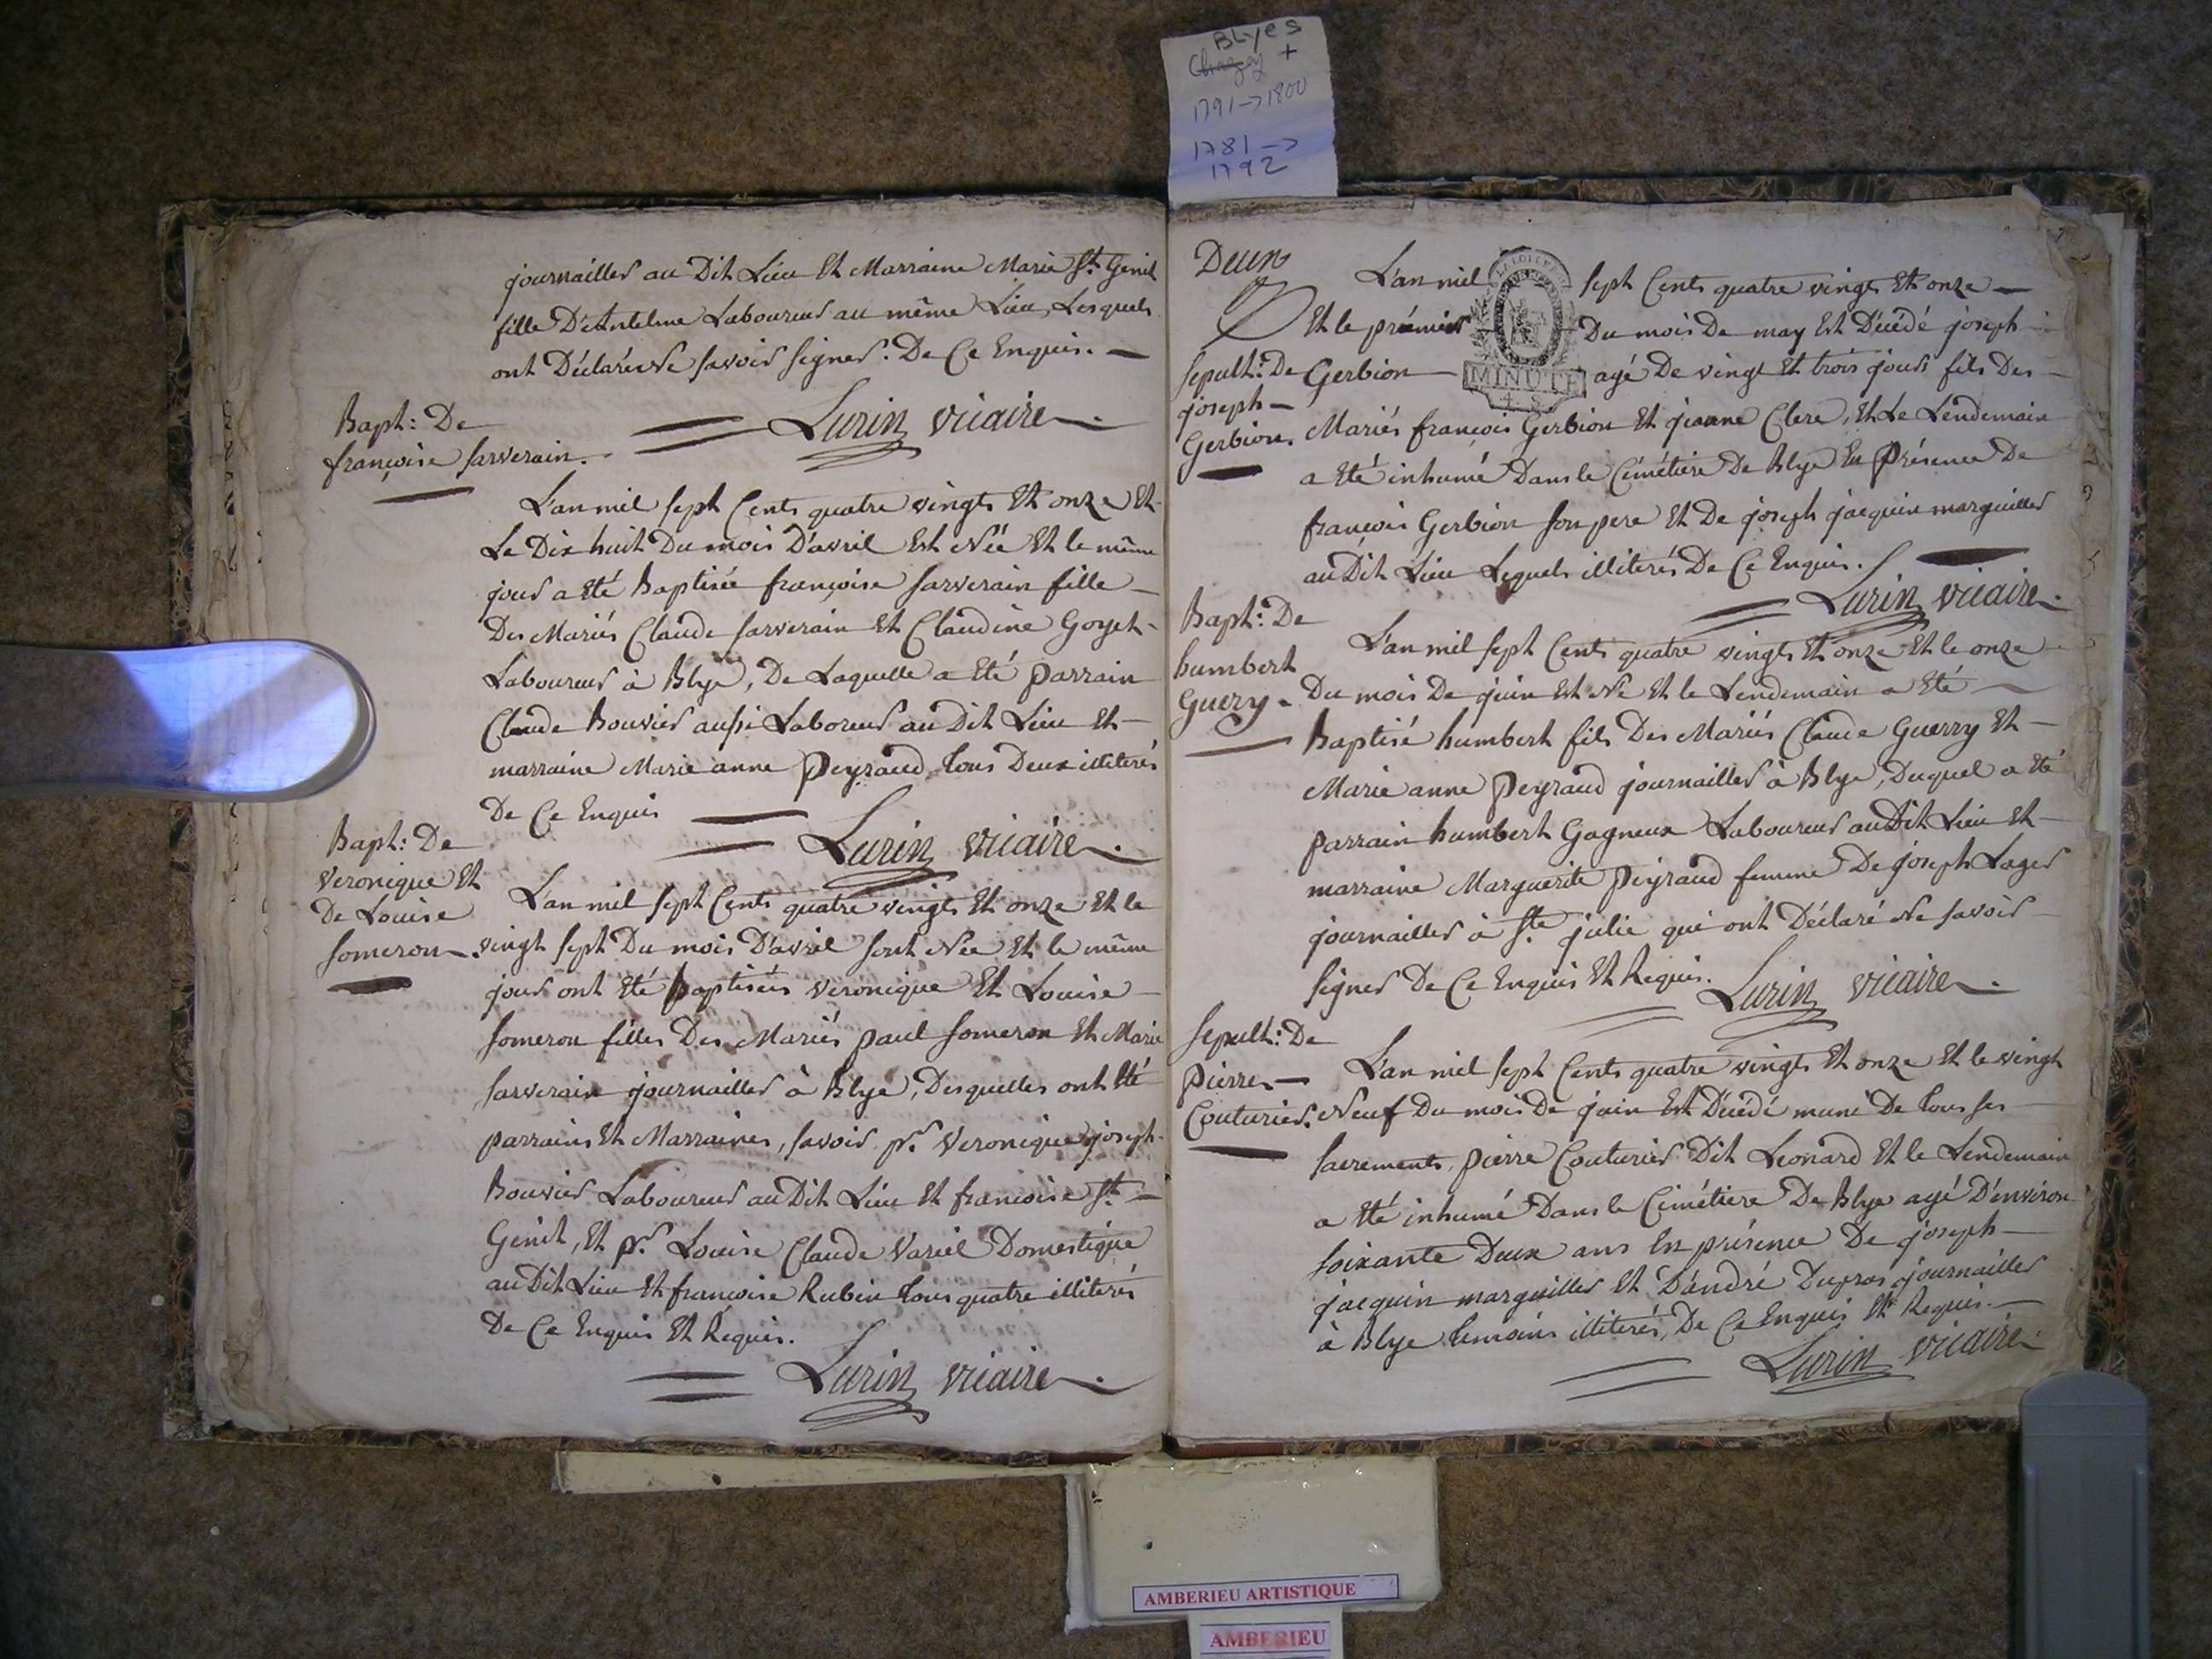 BLyes
Chazey +
1791->1800
1781->
1792
journallier au Dit Lieu Et Marraine Marie St. Genit
fille D'Antelme Laboureur au même Lieu, Lesquels
ont Déclarés Ne savoir signer. De Ce Enquis.
Lurin vicaire
Bapt: De
françoise sarverain.
L'an mil sept Cents quatre vingts Et onze Et
Le Dix huit Du mois D'avril Est Née Et le même
jour a Eté Baptisée françoise sarverain fille
Des Mariés Claude sarverain Et Claudine Goyet
Laboureur à Blye, De Laquelle a Eté parrain
Claude Bouvier aussi Laboreur au Dit Lieu Et
marraine Marie anne Peyraud, tous Deux illiterés
De Ce Enquis
Lurin vicaire.
Bapt: De
Veronique Et
De Louise
someron
L'an mil sept Cents quatre vingts Et onze Et le
vingt sept Du mois D'avril sont Née Et le même
jour ont Eté Baptisées Veronique Et Louise
someron filles Des Mariés paul someron Et Marie
sarverain journallier à Blye, Desquelles ont Eté
parrains Et Marraines, savoir pr. Veronique joseph
Bouvier Laboureur au Dit Lieu Et francoise St.
Genit, Et pr. Louise Claude Variel Domestique
au Dit Lieu Et francoise Rubin tous quatre illiterés
De Ce Enquis Et Requis.
Lurin vicaire.
Deux
L'an mil sept Cents quatre vingts Et onze
Et le prémier Du mois De may Est Décédé joseph
MINUTE
sepult: De
joseph
Gerbion.
Gerbion agé De vingt Et trois jours fils Des
Mariés francois Gerbion Et jeanne Clere, Et Le Lendemain
a Eté inhumé Dans le Cimétiere De Blye En Présence De
francois Gerbion son pere Et De joseph jacquin marguiller
au Dit Lieu Lequels illiterés De Ce Enquis.
Lurin vicaire.
Bapt: De
humbert
Guerry
L'an mil sept Cents quatre vingts Et onze Et le onze
Du mois De juin Est Né Et le Lendemain a Eté
Baptisé humbert fils Des Mariés Claude Guerry Et
Marie anne Peyraud journallier à Blye, Duquel a Eté
parrain humbert Gagneux Laboureur au Dit Lieu Et
marraine Marguerite Peyraud femme De joseph Lager
journallier à Ste julie qui ont Déclaré Ne savoir
signer De Ce Enquis Et Requis.
Lurin vicaire.
sepult: De
pierre
Couturier.
L'an mil sept Cents quatre vingts Et onze Et le vingt
Neuf Du mois De juin Est Décédé muni De tous ses
sacrements, pierre Couturier Dit Leonard Et le Lendemain
a Eté inhumé Dans le Cimétiere De Blye agé D'environ
soixante Deux ans En présence De joseph
jacquin marguiller Et D'andré Dupras journallier
à Blye temoins illiterés, De Ce Enquis Et Requis.
Lurin vicaire
AMBERIEU ARTISTIQUE
AMBERIEU